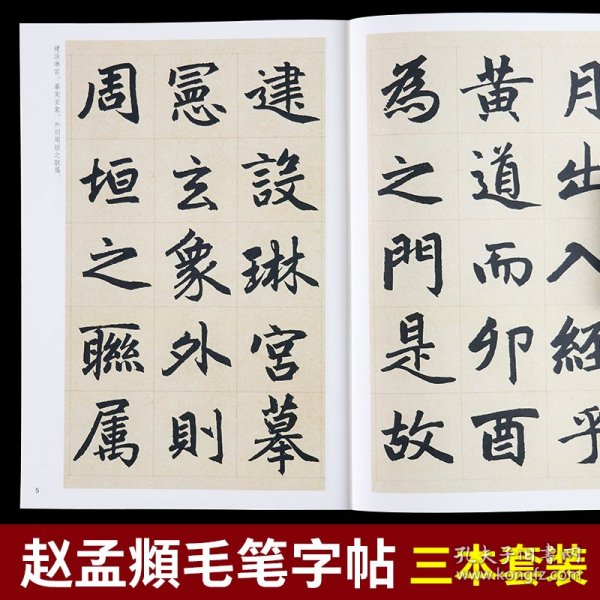 月出入經乎
黄道而卯酉
為之門是故
建設琳宮摹
憲玄象外則
周垣之聯属
建设琳宫。摹宪玄象。外则周垣之联属。
5
赵孟頫毛笔字帖 三本套装
孔夫子旧书网
www.kongfz.com